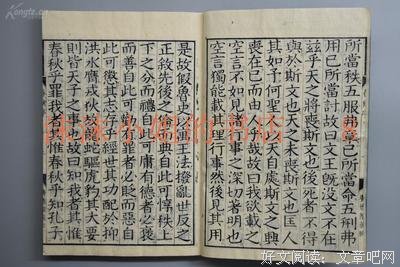 所當秩五服弗章己所當命五刑弗
用己所當討故曰文王既沒文不在
茲乎天之將喪斯文也後死者不得
與於斯文也天之未喪斯文也匡人
其如予何聖人以天自處斯文之興
喪在己而由人乎哉故曰我欲載之
空言不如見諸行事之深切著明也
空言獨能載其理行事然後見其用
是故假魯史以寓王法撥亂世反之
正敘先後之倫而典自此可惇秩上
下之分而禮自此可庸有德者必褒
而善自此可勸有罪者必貶而惡自
此可懲其志存乎經世其功配於抑
洪水膺戎狄放龍蛇驅虎豹其大要
則皆天子之事也故曰知我者其惟
春秋乎罪我者其惟春秋乎知孔子
好文阅读：文章吧网